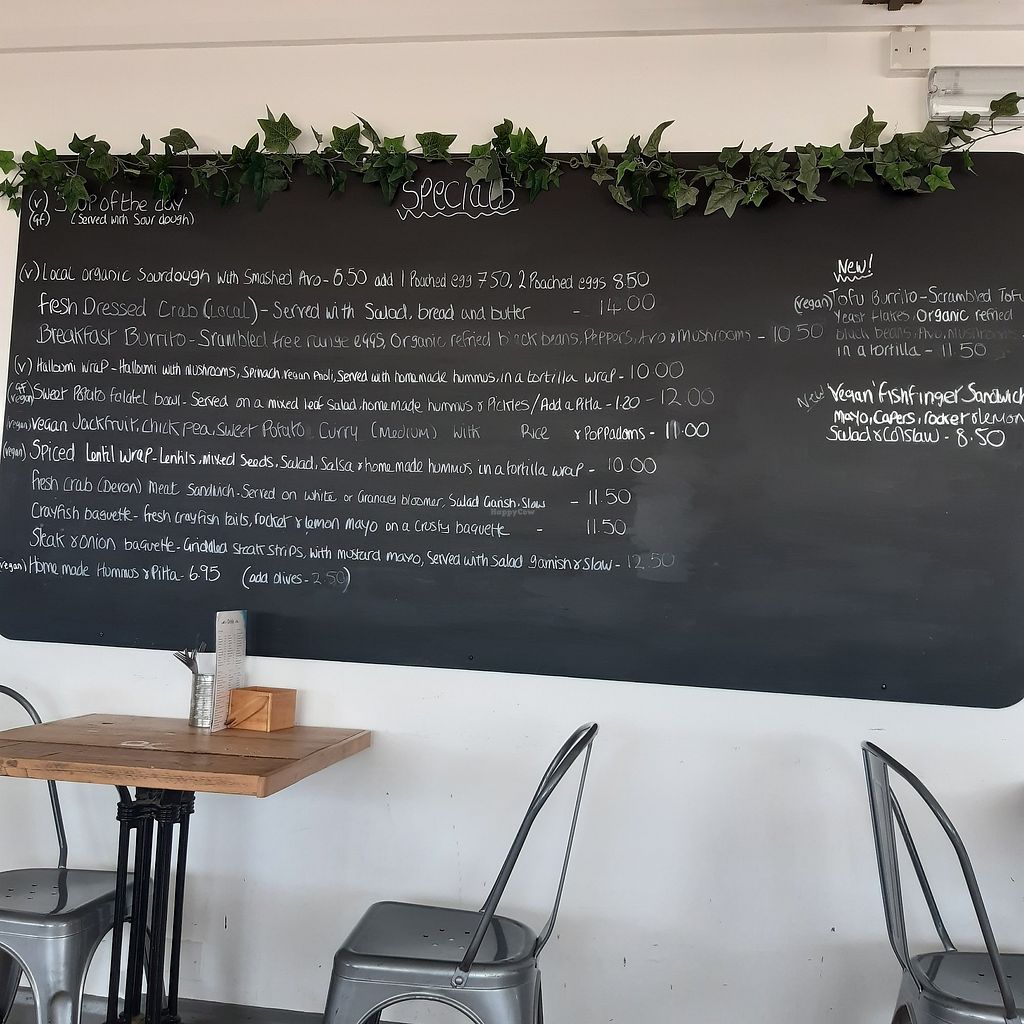 Specials
(v) Soup of the day'
(GF) (Served with Sour dough)
(v) Local organic Sourdough with Smashed Avo - 6.50 add 1 Poached egg 7.50, 2 Poached eggs 8.50
fresh Dressed Crab (Local) - Served with Salad, bread and butter - 14.00
Breakfast Burrito - Srambled free range eggs, Organic refried black beans, Peppers, Avo & Mushrooms - 10.50
(v) Halloumi wrap - Halloumi with Mushrooms, Spinach, vegan Aioli, Served with home made hummus, in a tortilla wrap - 10.00
(GF) (vegan) Sweet Potato falafel bowl - Served on a mixed leaf Salad, home made hummus & Pickles / Add a Pitta - 1.20 - 12.00
(vegan) vegan Jackfruit, chick pea, Sweet Potato Curry (Medium) with Rice & Poppadoms - 11.00
(vegan) Spiced Lentil wrap - Lentils, Mixed Seeds, Salad, Salsa & home made hummus in a tortilla wrap - 10.00
fresh Crab (Devon) Meat Sandwich. Served on white or Granary bloomer, Salad Garish, Slaw - 11.50
Crayfish baguette - fresh crayfish tails, rocket & lemon mayo on a Crusty baguette - 11.50
Steak & onion baguette - Griddled steak strips, with mustard mayo, Served with Salad garnish & Slaw - 12.50
(vegan) Home made Hummus & Pitta - 6.95 (add olives - 2.50)
New!
(vegan) Tofu Burrito - Scrambled Tofu
Yeast flakes, Organic refried
black beans, Avo, Mushrooms
in a tortilla - 11.50
New 'Vegan' fishfinger Sandwich
Mayo, Capers, rocket & lemon
Salad & Colslaw - 8.50
HappyCow